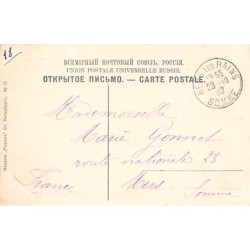 18
ВСЕМІРНЫЙ ПОЧТОВЫЙ СОЮЗЪ. РОССІЯ.
UNION POSTALE UNIVERSELLE RUSSIE.
ОТКРЫТОЕ ПИСЬМО. — CARTE POSTALE.
BAINS
SOMME
Mademoiselle
Marie Gonnet
route nationale 23
Mers
France
Somme